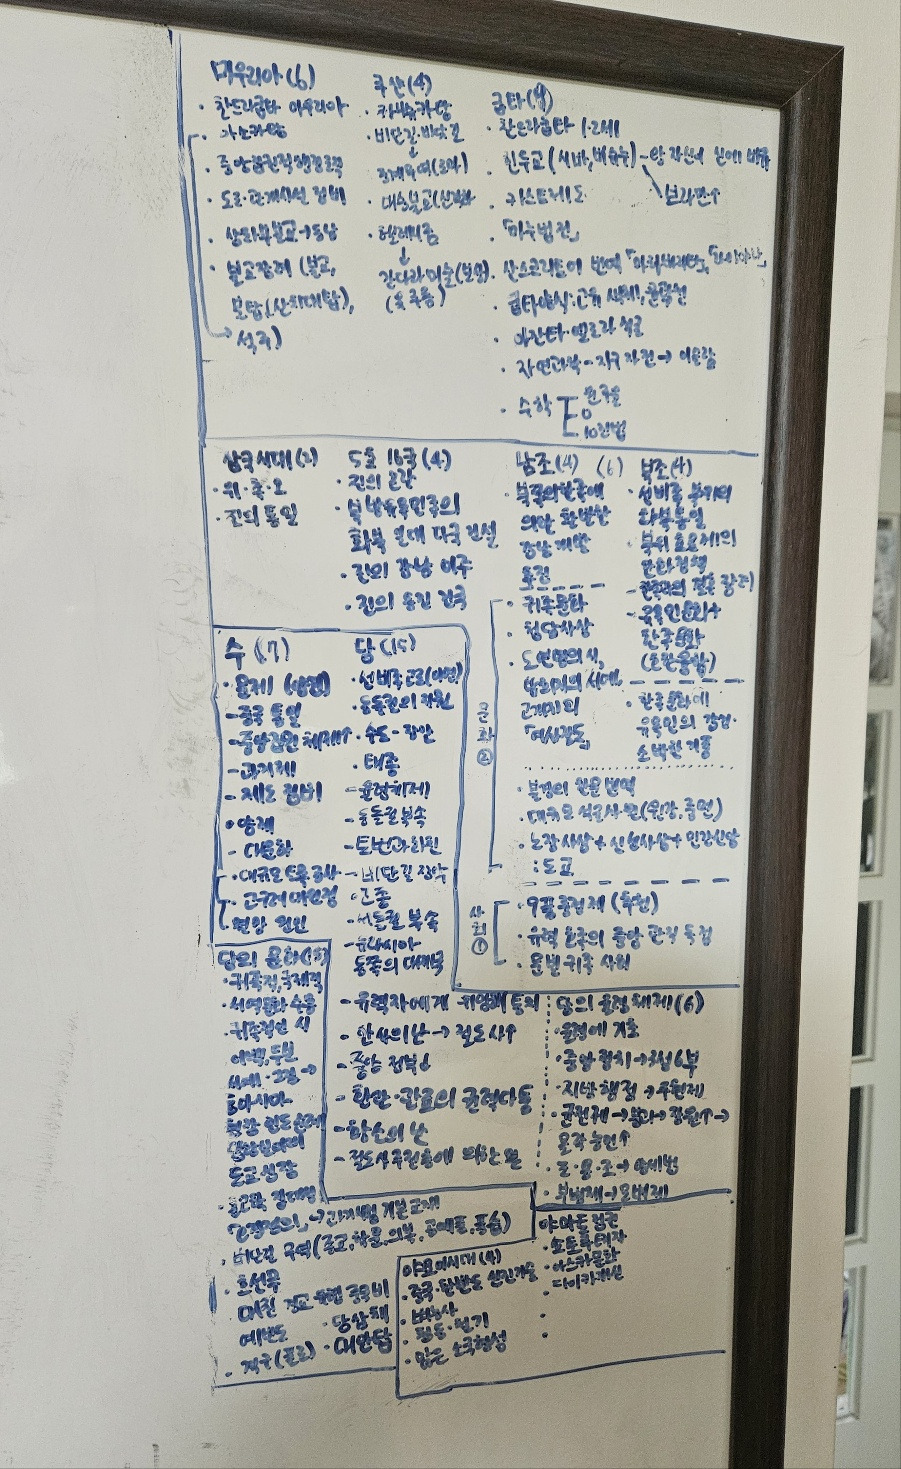 마우리아(6)
· 찬드라굽타 마우리아
· 아소카왕
· 중앙집권적 행정조직
· 도로·관개시설 정비
· 상좌부불교→동남
· 불교장려 (불교,
불탑(산치대탑),
석주)
쿠샨(4)
· 카니슈카왕
· 비단길·바닷길
↓
중계무역(로마)
· 대승불교
· 헬레니즘
↓
간다라미술(보살)
굽타(9)
· 찬드라굽타 1·2세
· 힌두교 (시바, 비슈누) - 왕 자신의 신에 비유
브라만↑
· 카스트제도
· 「마누법전」
· 산스크리트어 번역 「마하바라타」, 「라마야나」
· 굽타양식: 고유 색채, 윤곽선
· 아잔타·엘로라 석굴
· 자연과학 - 지구 자전 → 이슬람
· 수학
원주율
0
10진법
삼국시대(2)
· 위·촉·오
· 진의 통일
5호 16국(4)
· 진의 혼란
· 북방유목민족의
화북 일대 다국 건설
· 진의 강남 이주
· 진의 동진 건국
남조(4) (6)
· 북쪽의 한족에
의한 활발한
강남 개발
북조(4)
· 선비족 북위의
화북통일
· 북위 효문제의
한화정책
- 한족과의 결혼 장려
- 유목민문화+
한족문화
(호한융합)
문화 ②
· 귀족문화
· 청담사상
· 도연명의 시,
왕희지의 서체,
고개지의
「여사잠도」
· 한족문화에
유목민의 강건·
소박한 기풍
· 불경의 한문 번역
· 대규모 석굴사원(윈강, 룽먼)
· 노장사상+신선사상+민간신앙
: 도교
사회 ①
· 9품중정제 (추천)
· 유력 호족의 중앙 관직 독점
· 문벌 귀족 사회
수(7)
· 문제
- 중국 통일
- 중앙집권 체제↑
- 과거제
- 제도 정비
· 양제
- 대운하
· 대규모 토목공사
· 고구려 대원정
당(15)
· 동돌궐의 지원
· 수도 - 장안
· 태종
- 율령체제
- 동돌궐 복속
- 토번과 화친
- 비단길 장악
· 고종
- 서돌궐 복속
- 유라시아
동쪽의 대제국
- 유력자에게 위임해 통치
- 안사의 난 → 절도사↑
- 중앙 정부↓
- 환관·관료의 권력다툼
- 황소의 난
- 절도사 주전충에 의한 멸
당의 율령체제(6)
· 율령에 기초
· 중앙정치→3성6부
· 지방 행정→주현제
· 균전제→붕괴→장원↑→
소작농민↑
· 조·용·조→양세법
· 부병제→모병제
당의 문화(13)
· 귀족적, 국제적
· 서역문화 수용
· 귀족적인 시
이백, 두보
서예·그림→
동아시아
도교 성장
「오경정의」→과거시험 기본교재
· 비단길 무역 (종교, 학문, 의복, 공예품, 풍습)
· 조선족
· 당삼채
· 대안탑
야요이시대(4)
· 중국·한반도 선진기술
· 벼농사
· 청동·철기
· 많은 소국형성
야마토 정권
· 쇼토쿠태자
· 아스카문화
· 다이카개신